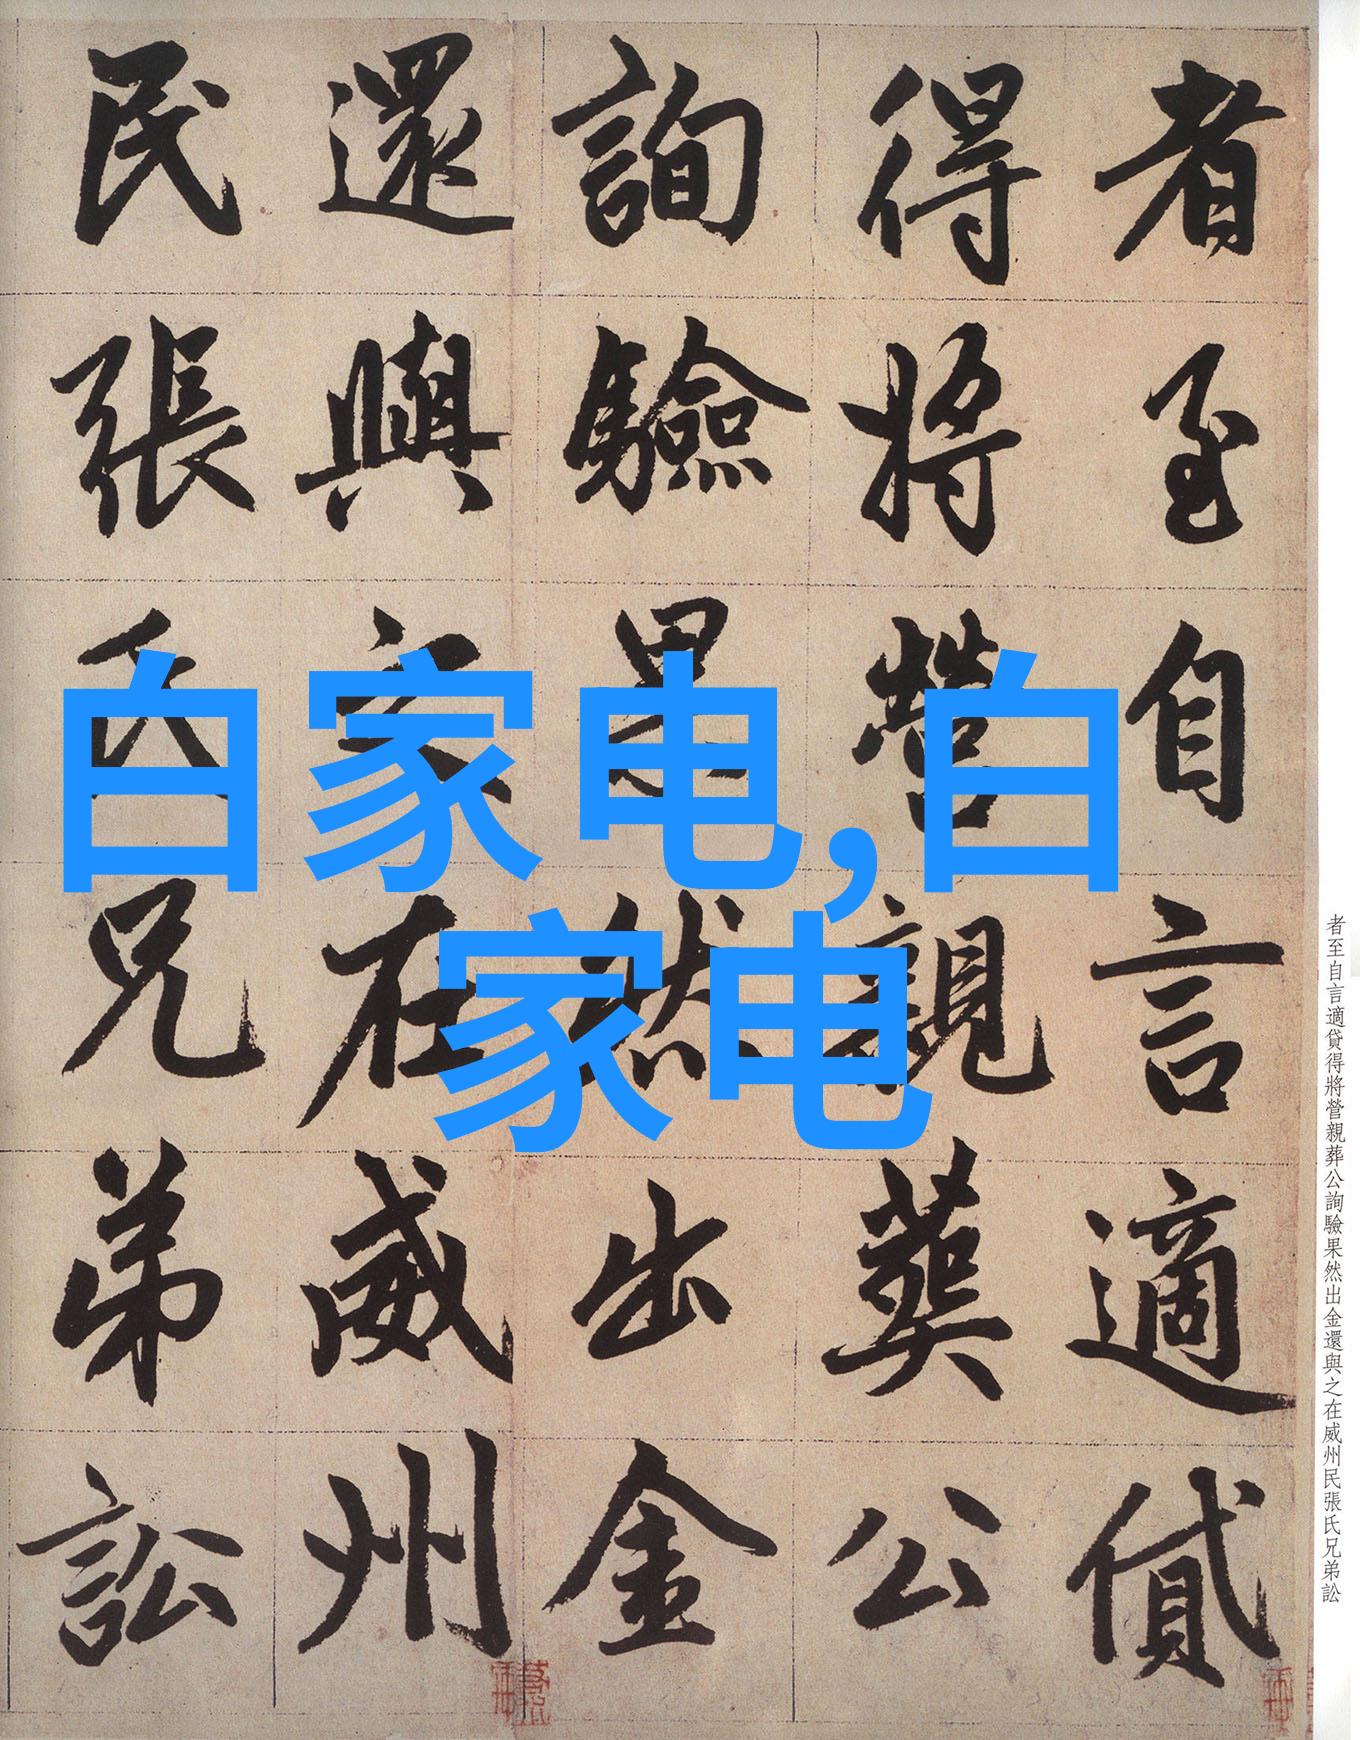 者至自言適貸
得將營親葬公
詢驗果然出金
還與之在威州
民張氏兄弟訟
白家电,白
家电
者至自言適貸得將營親葬公詢驗果然出金還與之在威州民張氏兄弟訟